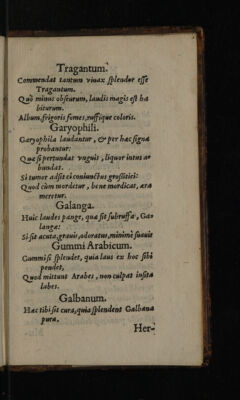 Tragantum.
Commendat tantum viuax ſplendor eſſe
Tragantum.
Quò minus obſcurum, laudis magis eſt ha
biturum.
Album, frigoris fomes, ruffique coloris.
Garyophili.
Garyophila laudantur, & per hæc ſigna
probantur:
Quæ ſi pertundat vnguis, liquor intus ar
bundat.
Si tumor adſit ei coniunctus groſſitiei:
Quod cùm mordetur, bene mordicat, æra
meretur.
Galanga.
Huic laudes pange, quæ ſit ſubruffa, Ga-
langa:
Si ſit acuta, grauis, adoratus, minimè ſuauis
Gummi Arabicum.
Gummi ſi ſplendet, quia laus ex hoc ſibi
pendet,
Quod mittunt Arabes, non culpat inſita
labes.
Galbanum.
Hæc tibi ſit cura, quia ſplendent Galbana
pura.
Her-